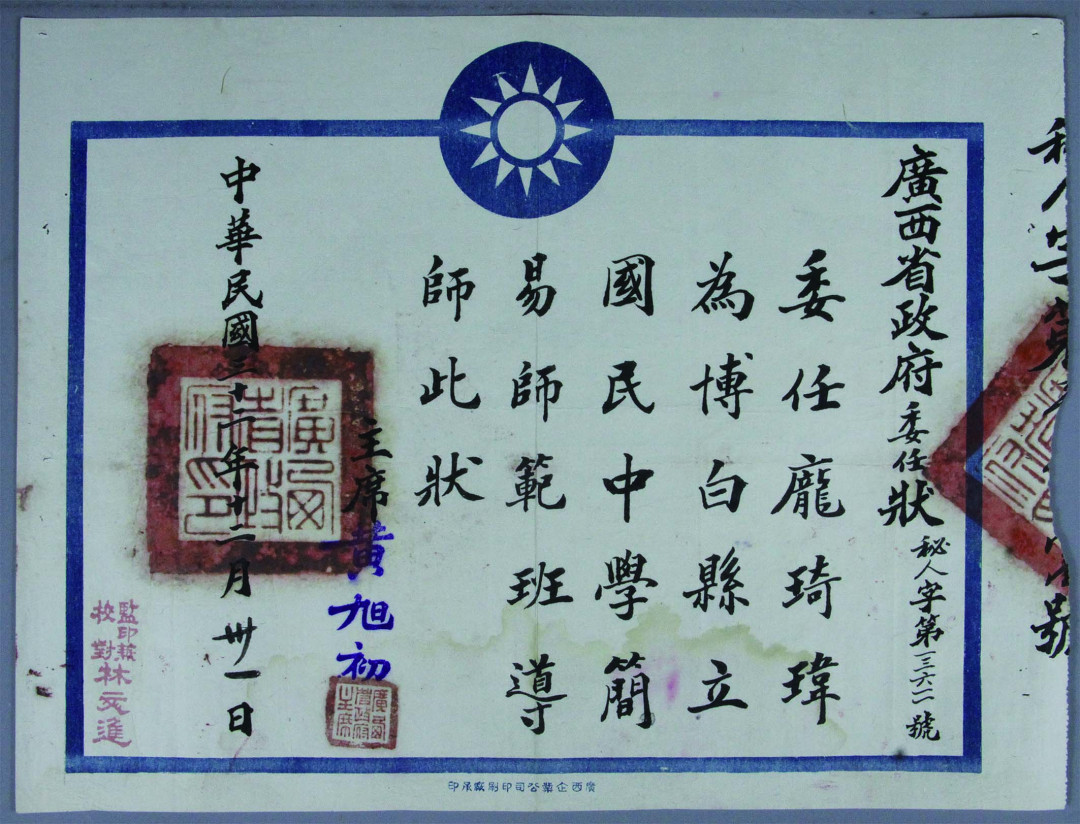 秘人字第
號
廣西省政府委任狀
秘人字第一三六二號
委任龐琦瑋
為博白縣立
國民中學簡
易師範班導
師此狀
主席黃旭初
廣西省政府主席
中華民國三十二年十二月卅一日
廣西省政府印
監印
校對林文進
廣西企業公司印刷廠承印